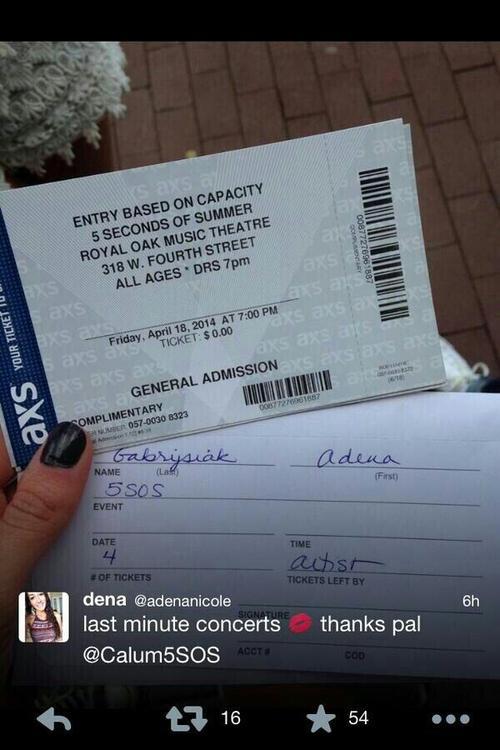 axs YOUR TICKET TO
ENTRY BASED ON CAPACITY
5 SECONDS OF SUMMER
ROYAL OAK MUSIC THEATRE
318 W. FOURTH STREET
ALL AGES * DRS 7pm
Friday, April 18, 2014 AT 7:00 PM
TICKET: $ 0.00
GENERAL ADMISSION
COMPLIMENTARY
NUMBER: 057-0030 8323
00877276961887
00877276961887
COMPLIMENTARY
Gabrysiak Adena
NAME (Last) (First)
5SOS
EVENT
DATE TIME
4 artist
# OF TICKETS TICKETS LEFT BY
SIGNATURE
ACCT # COD
dena @adenanicole 6h
last minute concerts 💋 thanks pal
@Calum5SOS
16 54